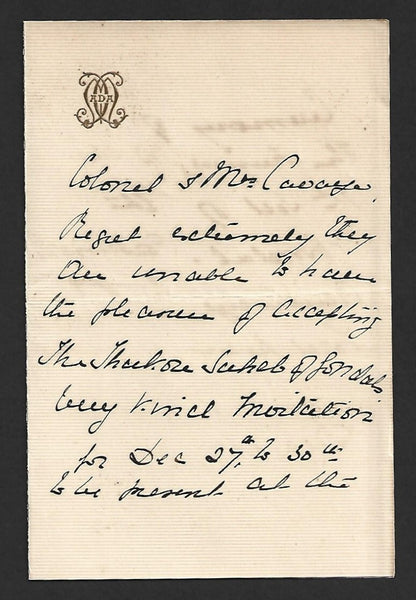 ADA
Colonel & Mrs Cavaye
Regret extremely they
are unable to have
the pleasure of accepting
The Thakore Saheb of Gondal's
very kind Invitation
for Dec 27th to 30th
to be present at the